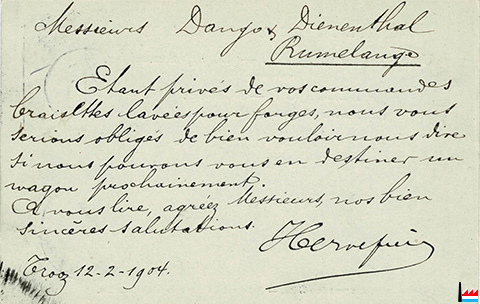 Messieurs Dango & Dienenthal
Rumelange
Etant privés de vos commandes
braisettes lavées pour forges, nous vous
serions obligés de bien vouloir nous dire
si nous pouvons vous en destiner un
wagon prochainement.
A vous lire, agréez Messieurs, nos bien
sincères salutations.
Trooz 12-2-1904.